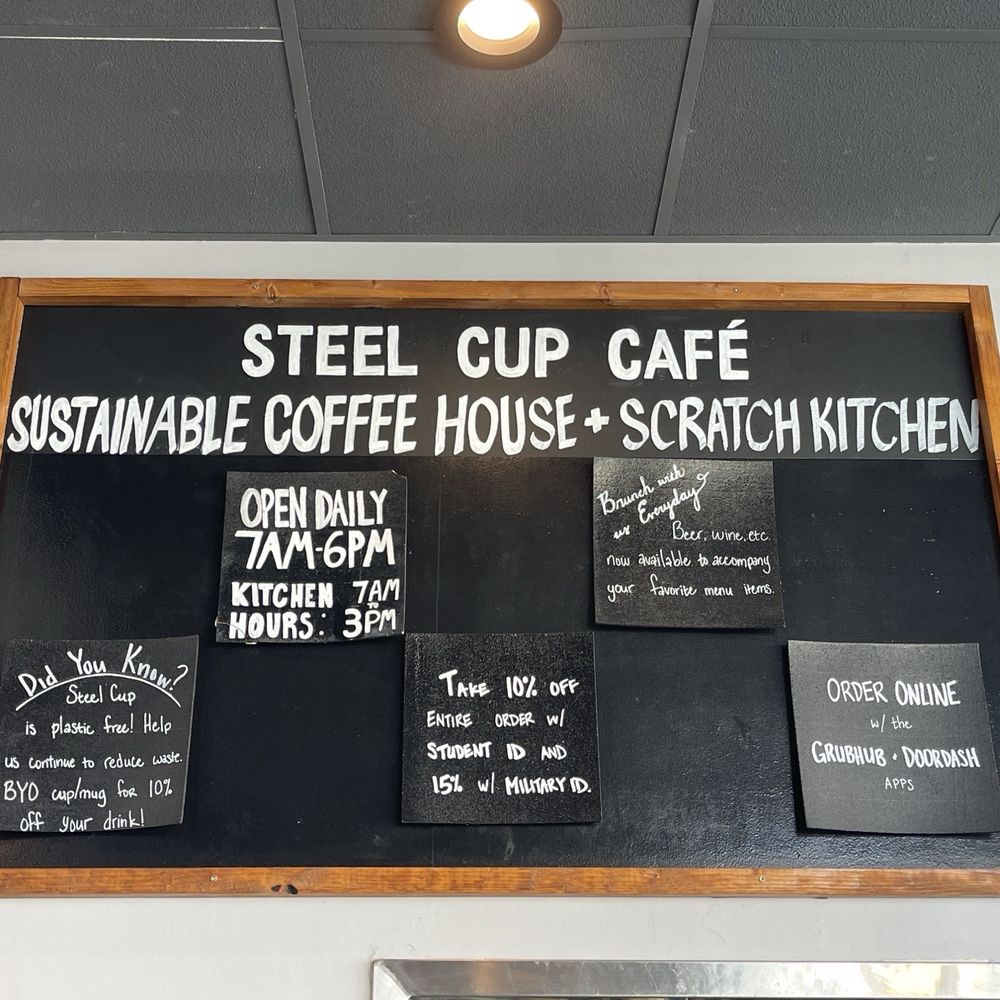 STEEL CUP CAFÉ
SUSTAINABLE COFFEE HOUSE + SCRATCH KITCHEN
OPEN DAILY
7AM-6PM
KITCHEN 7AM
HOURS: TO 3PM
Brunch with
us Everyday
Beer, wine, etc.
now available to accompany
your favorite menu items.
Did You Know?
Steel Cup
is plastic free! Help
us continue to reduce waste.
BYO cup/mug for 10%
off your drink!
TAKE 10% OFF
ENTIRE ORDER W/
STUDENT ID AND
15% W/ MILITARY ID.
ORDER ONLINE
w/ the
GRUBHUB + DOORDASH
APPS